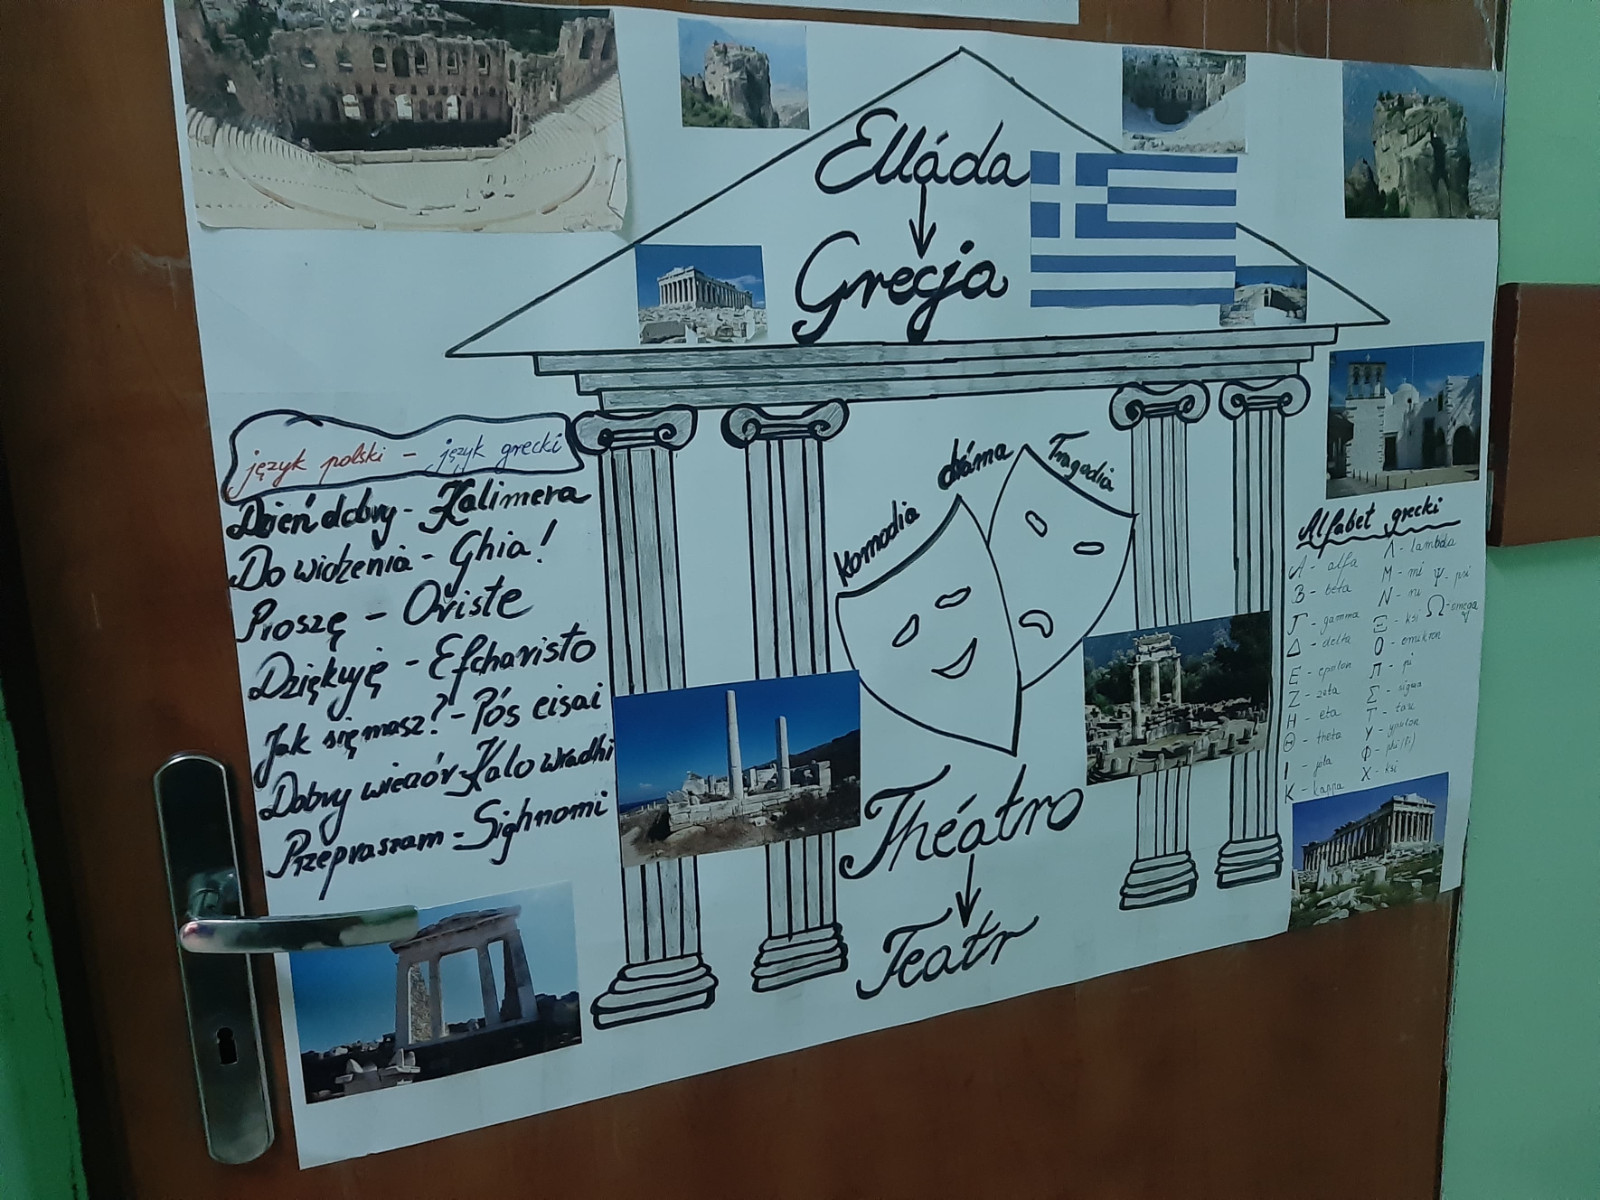 Elláda
Grecja
język polski - język grecki
Dzień dobry - Kalimera
Do widzenia - Ghia!
Proszę - Oriste
Dziękuję - Efcharisto
Jak się masz? - Pós eisai
Dobry wieczór - Kalo wradhi
Przepraszam - Sighnomi
komodia
dráma
Tragodia
Théatro
Teatr
Alfabet grecki
A - alfa
B - beta
Γ - gamma
Δ - delta
E - epsilon
Z - zeta
H - eta
Θ - theta
I - jota
K - kappa
Λ - lambda
M - mi
N - ni
Ξ - ksi
O - omikron
Π - pi
Σ - sigma
T - tau
Y - ypsilon
Φ - phi (fi)
X - ksi
Ψ - psi
Ω - omega